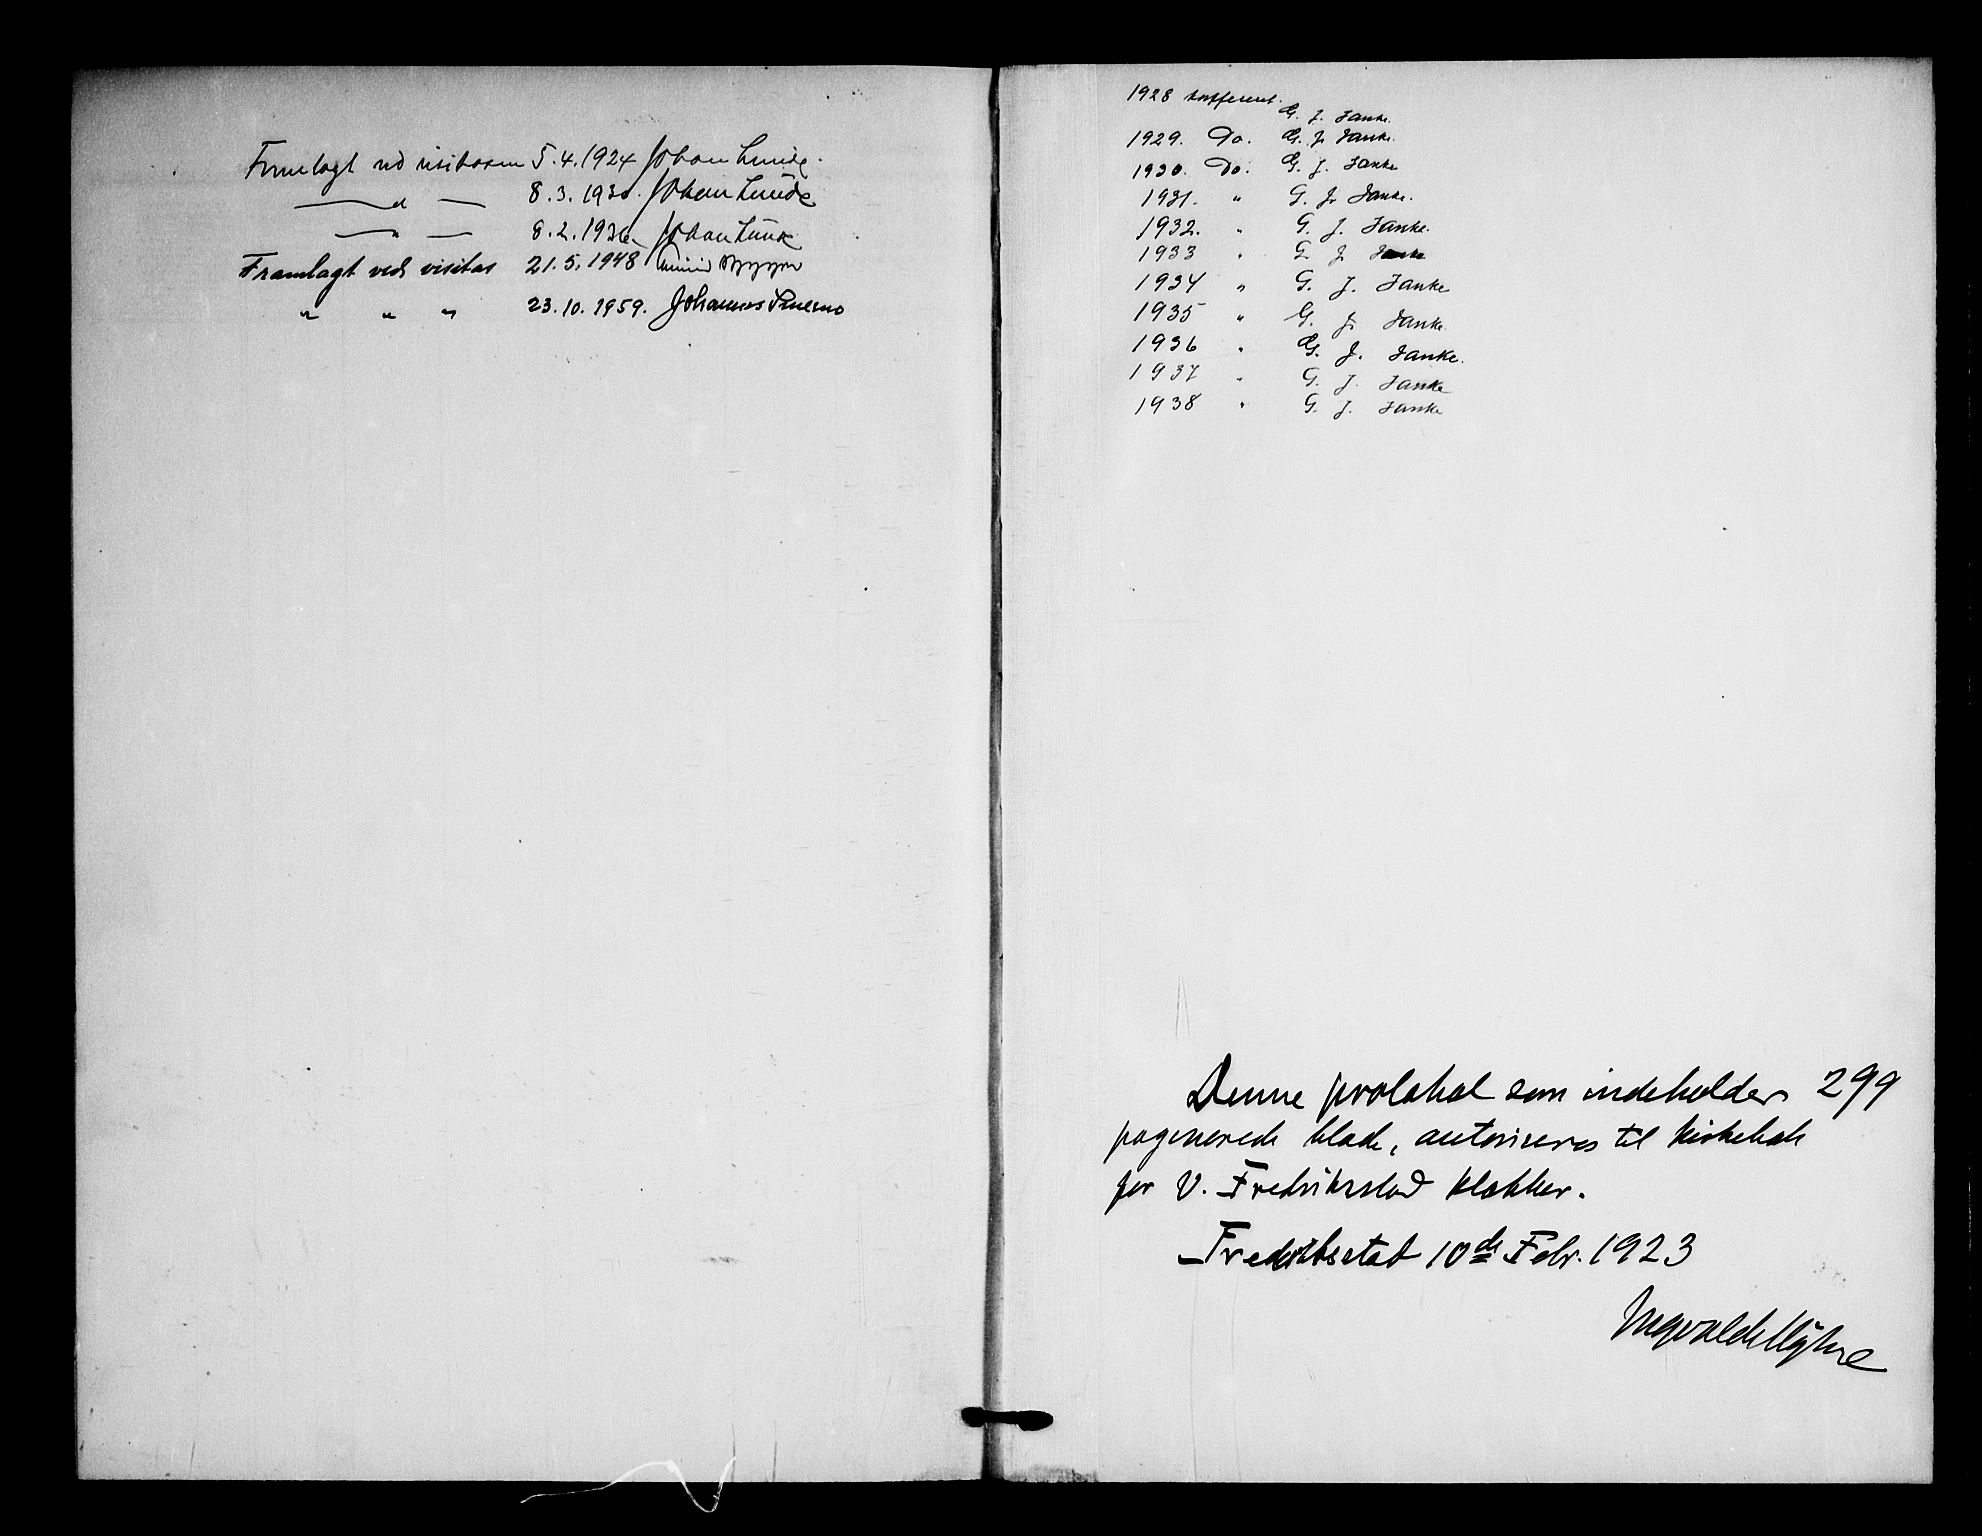 Fremlagt ved visitasen 5.4.1924 Johan Lunde.
— " — 8.3.1930. Johan Lunde
— " — 8.2.1936 Johan Lunde
Framlagt ved visitas 21.5.1948
" " " 23.10.1959. Johannes Smemo
1928 konfereret.
G. J. Janke.
1929. Do. G. J. Janke.
1930. Do. G. J. Janke
1931. " G. J. Janke.
1932. " G. J. Janke.
1933 " G J Janke
1934 " G. J. Janke
1935 " G. J. Janke.
1936 " G. J. Janke.
1937 " G. J. Janke
1938 " G. J. Janke
Denne protokol som indeholder 299
paginerede blade, autoriseres til kirkebok
for V. Fredrikstad klokker.
Fredrikstad 10de Febr. 1923